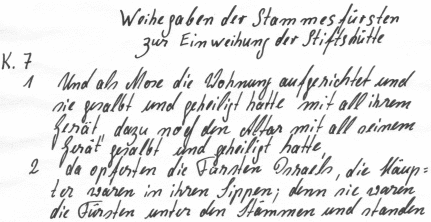 Weihegaben der Stammesfürsten
zur Einweihung der Stiftshütte
K. 7
1 Und als Mose die Wohnung aufgerichtet und
sie gesalbt und geheiligt hatte mit all ihrem
Gerät, dazu noch den Altar mit all seinem
Gerät gesalbt und geheiligt hatte,
2 da opferten die Fürsten Israels, die Häup=
ter waren in ihren Sippen; denn sie waren
die Fürsten unter den Stämmen und standen